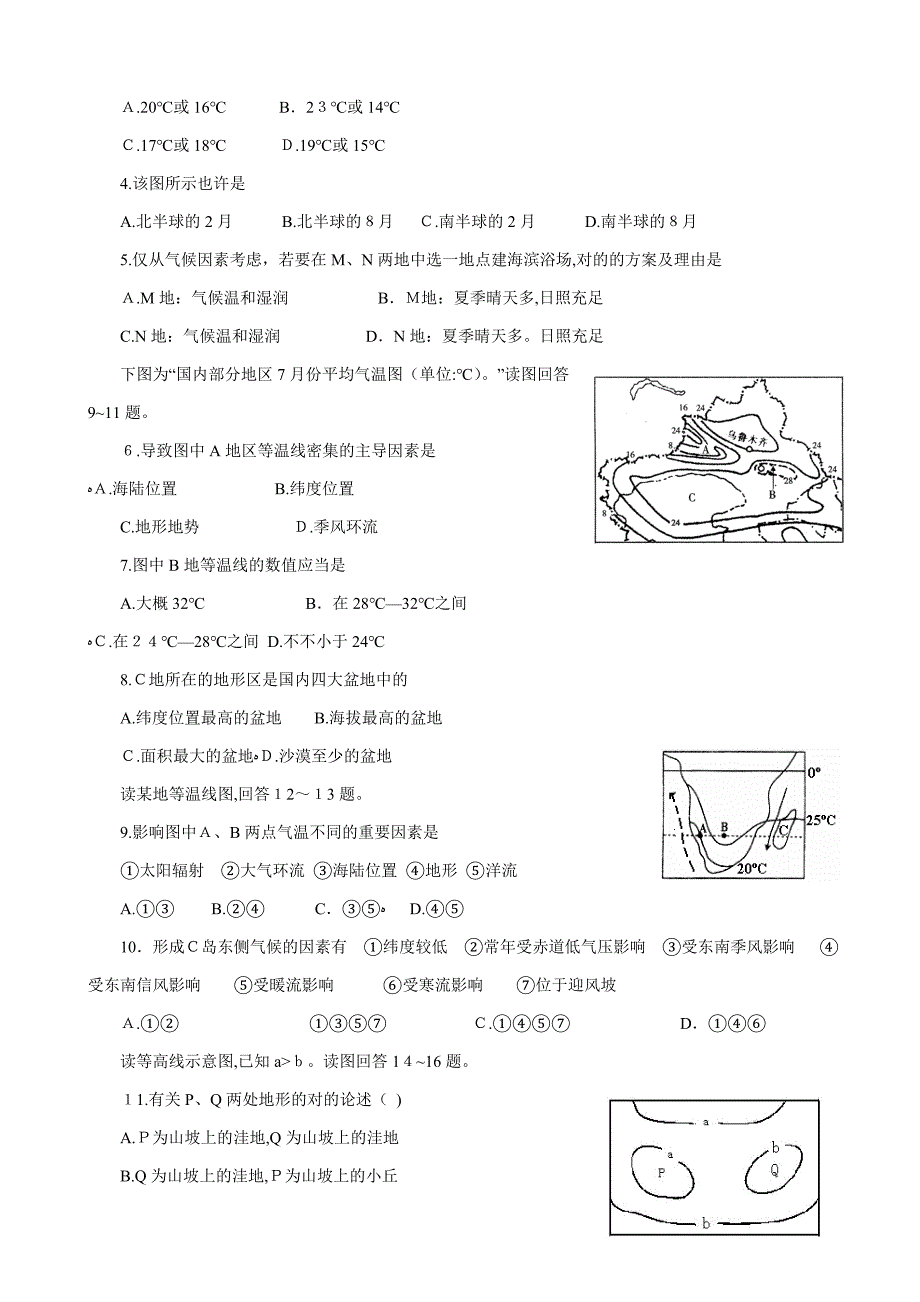 Ａ.20℃或16℃ B．2３℃或14℃
Ｃ.17℃或18℃ Ｄ.19℃或15℃
4.该图所示也许是
A.北半球的2月 B.北半球的８月 Ｃ.南半球的2月 D.南半球的８月
5.仅从气候因素考虑，若要在M、N两地中选一地点建海滨浴场,对的的方案及理由是
Ａ.M地：气候温和湿润 B．Ｍ地：夏季晴天多,日照充足
C.N地：气候温和湿润 D．N地：夏季晴天多。日照充足
下图为“国内部分地区7月份平均气温图（单位:℃）。”读图回答
9~11题。
６.导致图中A地区等温线密集的主导因素是
Ａ.海陆位置 B.纬度位置
C.地形地势 Ｄ.季风环流
7.图中B地等温线的数值应当是
A.大概32℃ B．在28℃—32℃之间
Ｃ.在２４℃—28℃之间 D.不不小于24℃
8.Ｃ地所在的地形区是国内四大盆地中的
A.纬度位置最高的盆地 B.海拔最高的盆地
Ｃ.面积最大的盆地 Ｄ.沙漠至少的盆地
读某地等温线图,回答１2～１3题。
9.影响图中Ａ、B两点气温不同的重要因素是
①太阳辐射 ②大气环流 ③海陆位置 ④地形 ⑤洋流
A.①③ B.②④ C．③⑤ D.④⑤
10．形成Ｃ岛东侧气候的因素有 ①纬度较低 ②常年受赤道低气压影响 ③受东南季风影响 ④
受东南信风影响 ⑤受暖流影响 ⑥受寒流影响 ⑦位于迎风坡
Ａ.①② ①③⑤⑦ Ｃ.①④⑤⑦ D．①④⑥
读等高线示意图,已知a>ｂ。读图回答1４~16题。
１1.有关P、Q两处地形的对的论述（ )
A.Ｐ为山坡上的洼地,Q为山坡上的洼地
B.Q为山坡上的洼地,Ｐ为山坡上的小丘
16 24
24
8 A
乌鲁木齐
16
24
24
28
C
B
8
24
0°
A B C
25℃
20℃
a
a b
P Q
b